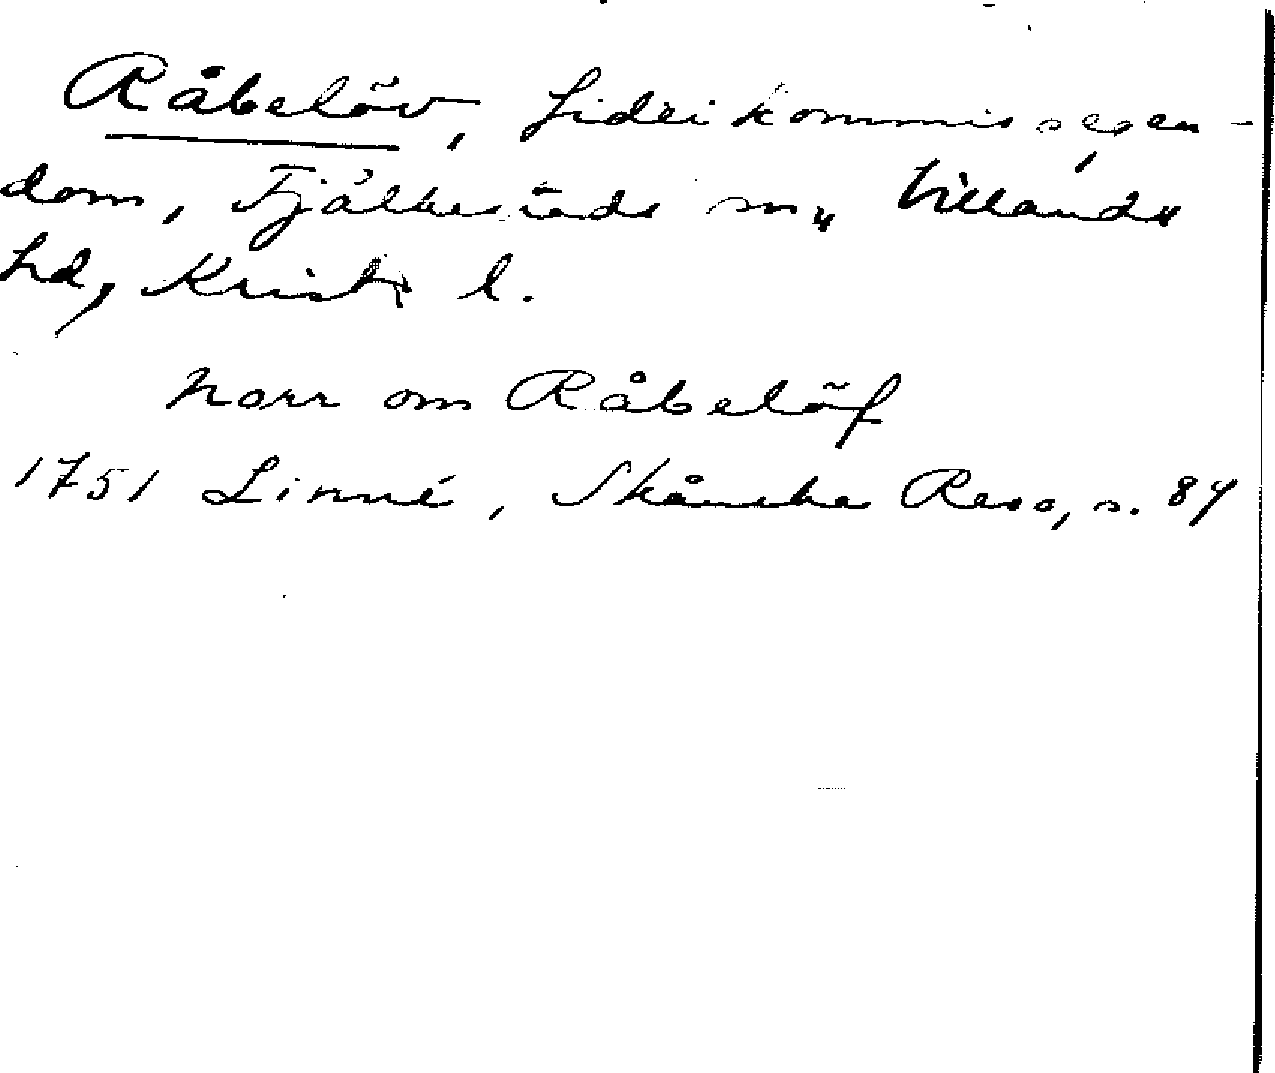 Råbelöv, fideikommissegen-
dom, Fjälkestads sn, Villands
hd, Krist. l.
norr om Råbelöf
1751 Linné, Skånska Resa, s. 84